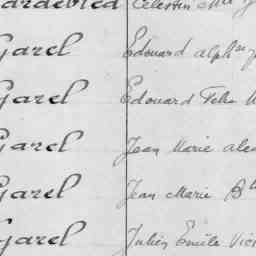 Célestin
Garel Edouard alph
Garel Edouard Felix
Garel Jean Marie
Garel Jean Marie B
Garel Julien Emile